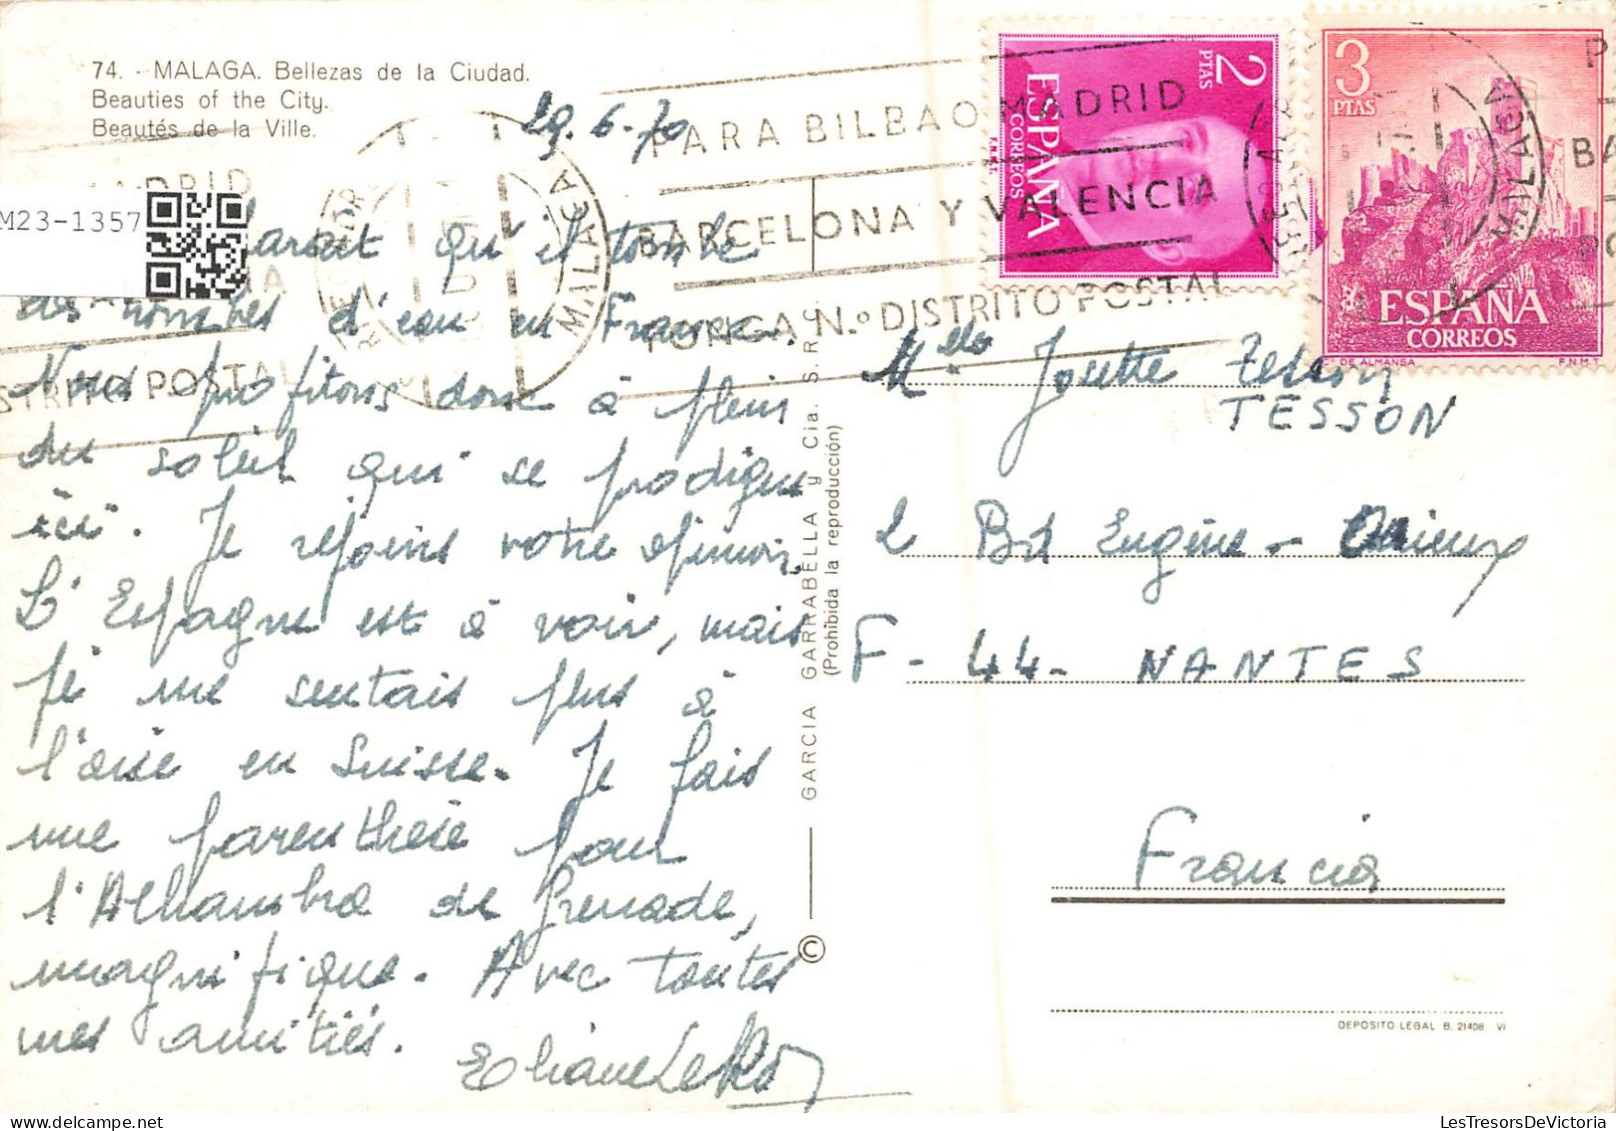 74. - MALAGA. Bellezas de la Ciudad.
Beauties of the City.
Beautés de la Ville.
29.6-70
M23-1357
parait qu'il tombe
des trombes d'eau en France.
Nous profitons donc à plein
du soleil qui se prodigue
ici. Je rejoins votre opinion,
L'Espagne est à voir, mais
je me sentais plus à
l'aise en Suisse. Je fais
une parenthèse pour
l'Alhambra de Grenade,
magnifique. Avec toutes
mes amitiés.
Eliane
GARCIA GARRABELLA y Cia. S.R.C.
(Prohibida la reproducción)
©
PARA BILBAO MADRID
BARCELONA Y VALENCIA
PONGA N.º DISTRITO POSTAL
MALAGA
2 PTAS
ESPAÑA
CORREOS
F.N.M.T.
3 PTAS
ESPAÑA
CORREOS
C.º DE ALMANSA F.N.M.T
MALAGA
MADRID
DISTRITO POSTAL
Melle Josette Tesson
TESSON
2 Bd Eugène - Orieux
F - 44 - NANTES
Francia
DEPOSITO LEGAL B. 21408 VI
LesTresorsDeVictoria